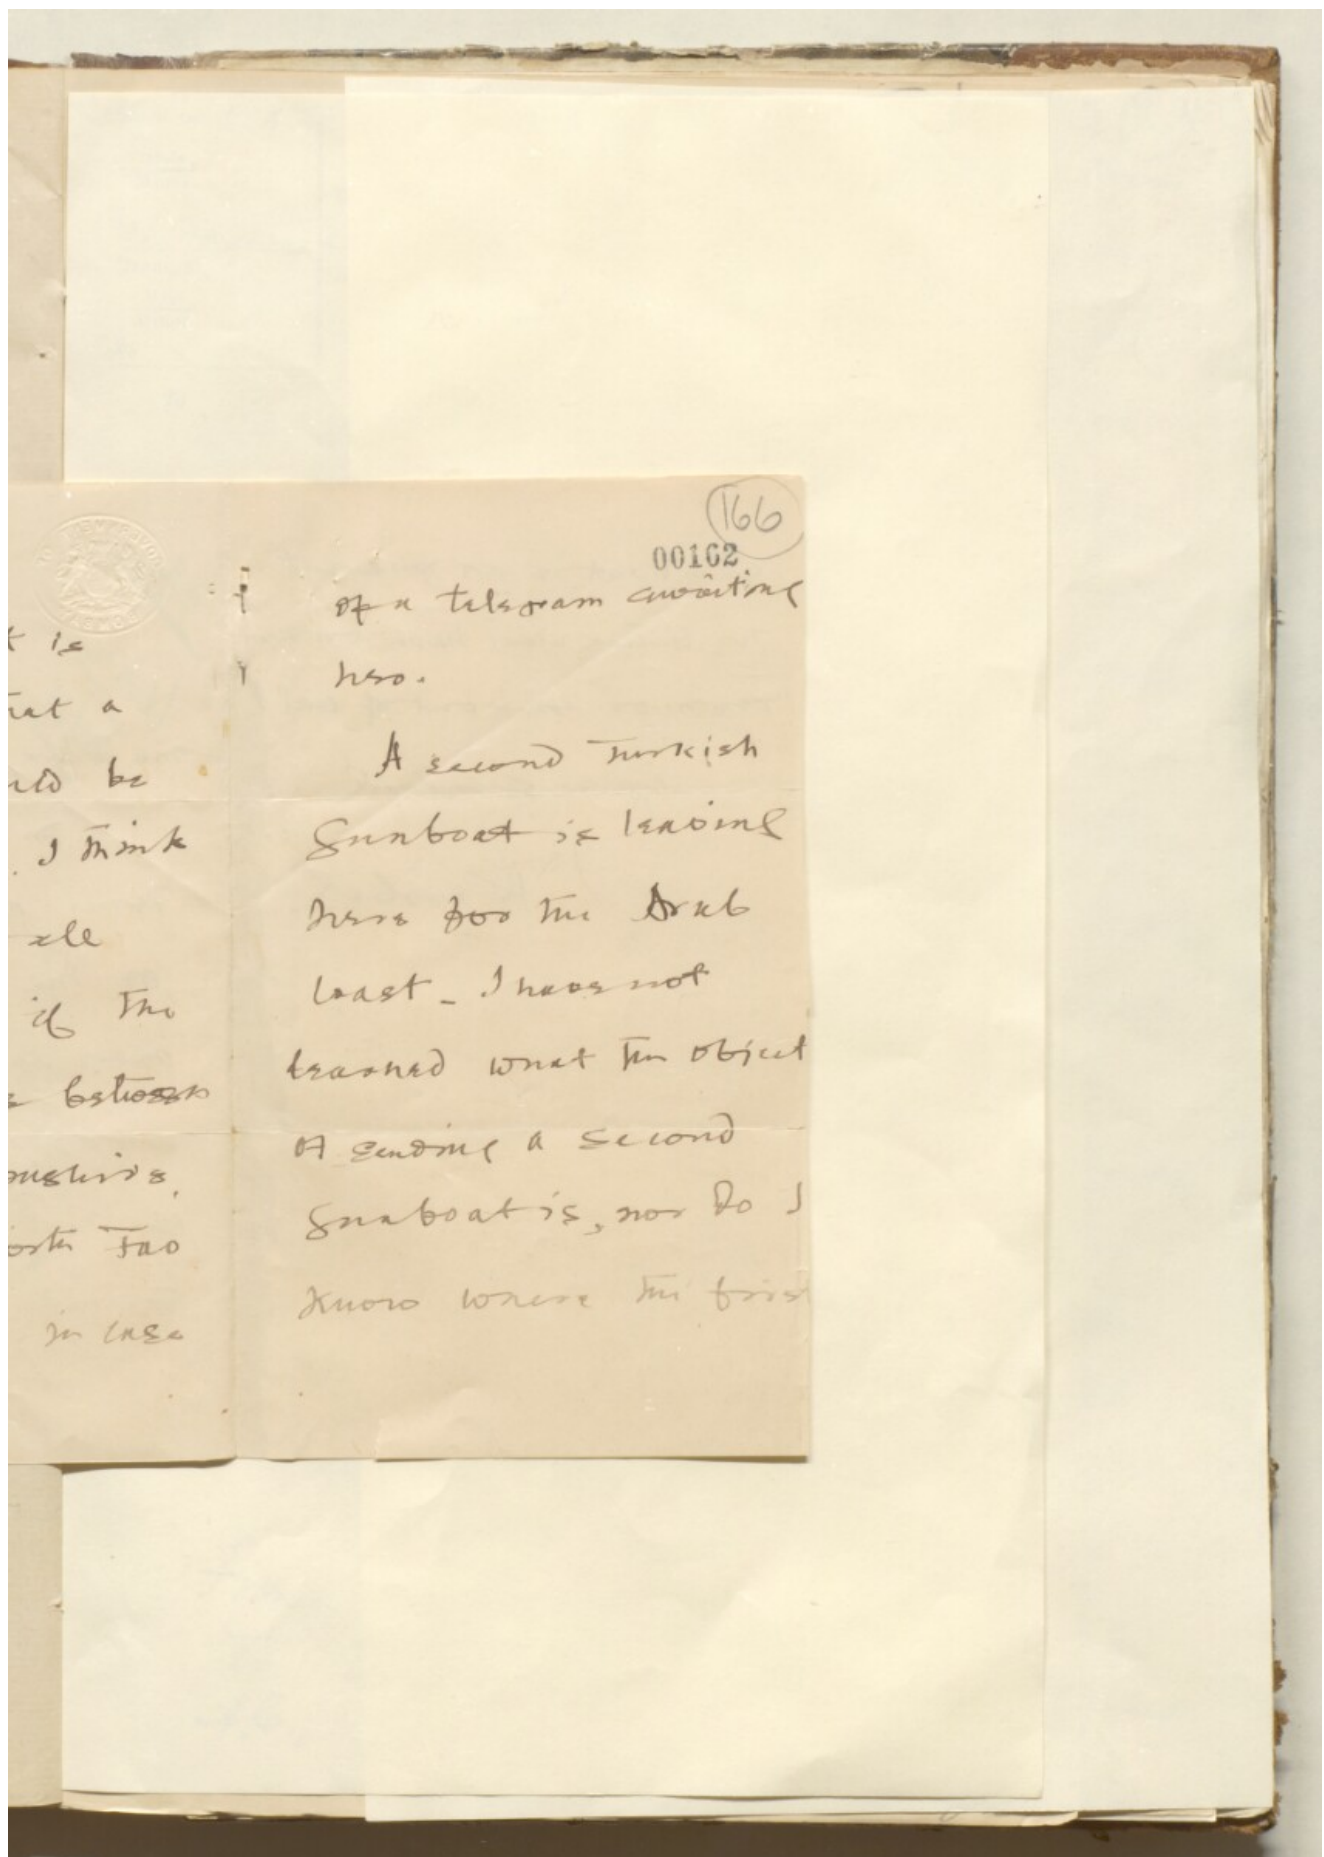 t is
hat a
uld be
. I think
if the
between
ushire,
Fao
in case
166
00162
of a telegram awaiting
her.
A second Turkish
Gunboat is leaving
here for the Arab
Coast _ I have not
learned what the object
of sending a second
Gunboat is, nor do I
know where the first